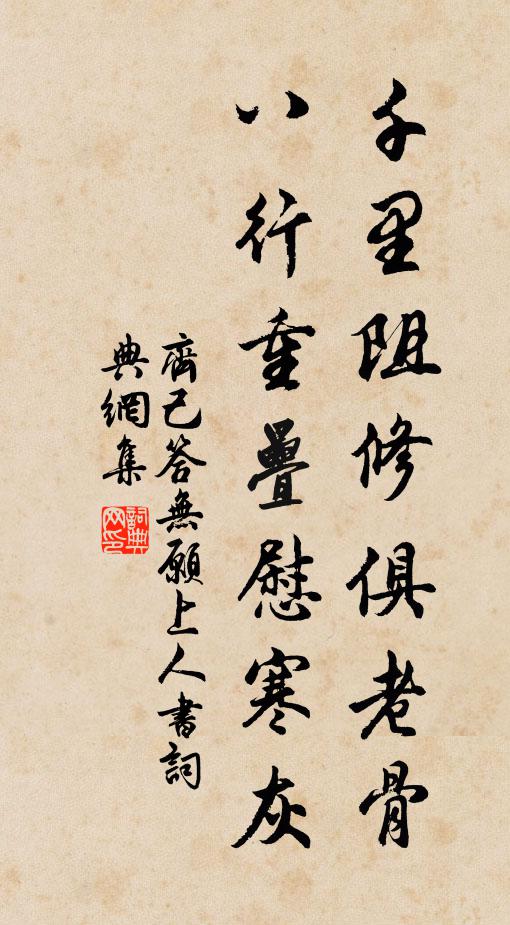 千里阻修俱老骨
八行重疊慰寒灰
齊己答無願上人書詞
典網集
詞典網印